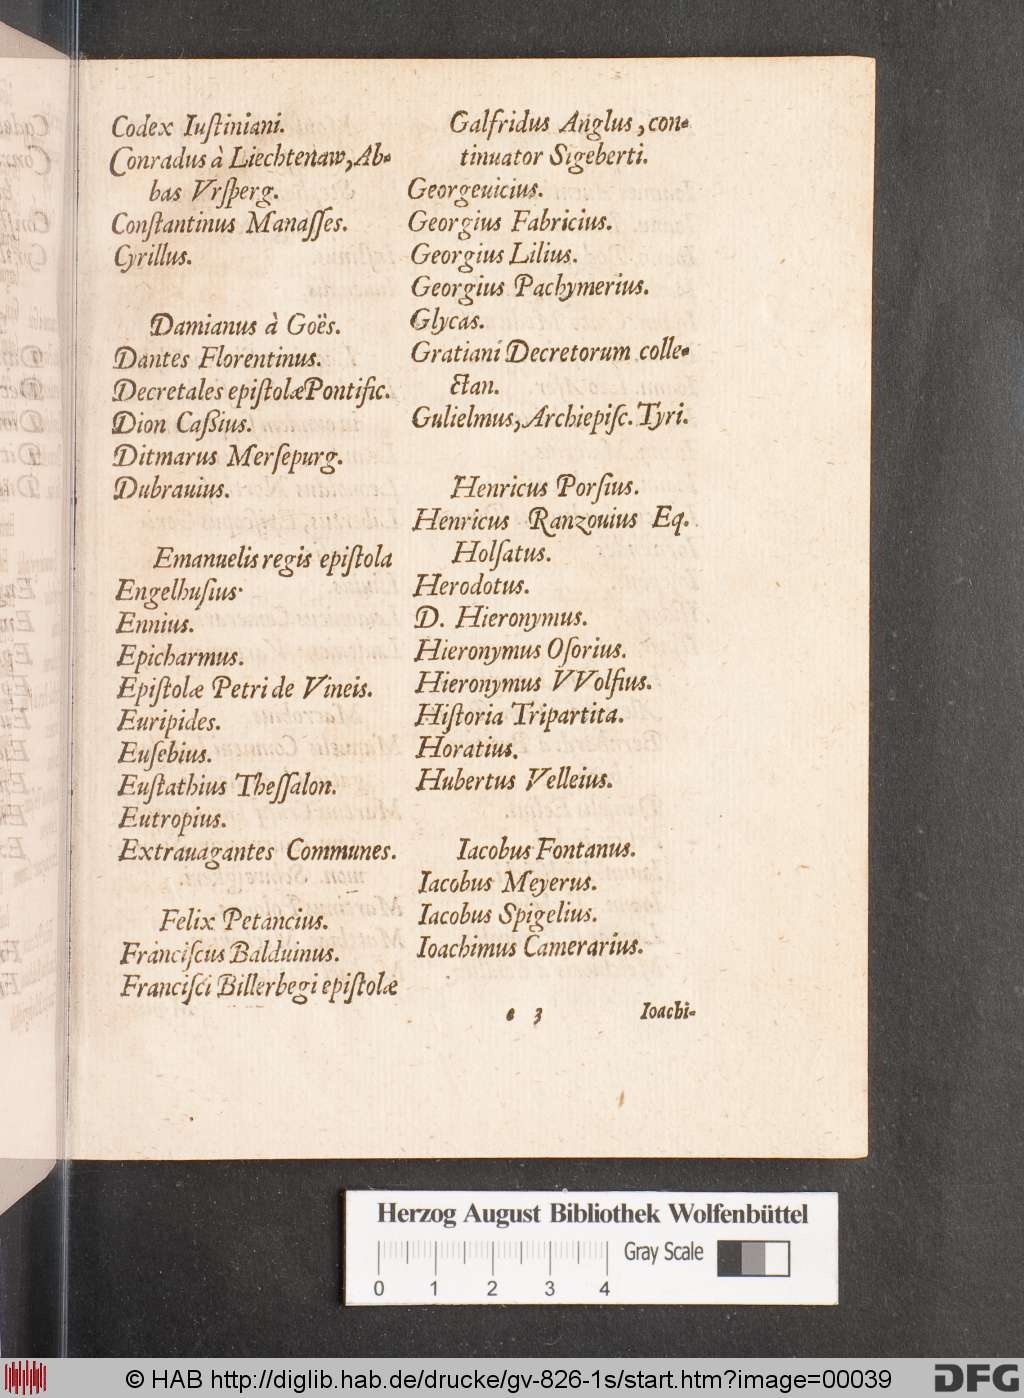 Codex Iuſtiniani.
Conradus à Liechtenaw, Ab-
bas Vrſperg.
Conſtantinus Manaſſes.
Cyrillus.
Damianus à Goës.
Dantes Florentinus.
Decretales epiſtolæ Pontific.
Dion Caſſius.
Ditmarus Merſepurg.
Dubrauius.
Emanuelis regis epiſtola
Engelhuſius.
Ennius.
Epicharmus.
Epiſtolæ Petri de Vineis.
Euripides.
Euſebius.
Euſtathius Theſſalon.
Eutropius.
Extrauagantes Communes.
Felix Petancius.
Franciſcus Balduinus.
Franciſci Billerbegi epiſtolæ
Galfridus Anglus, con-
tinuator Sigeberti.
Georgeuicius.
Georgius Fabricius.
Georgius Lilius.
Georgius Pachymerius.
Glycas.
Gratiani Decretorum colle-
ctan.
Gulielmus, Archiepiſc. Tyri.
Henricus Porſius.
Henricus Ranzouius Eq.
Holſatus.
Herodotus.
D. Hieronymus.
Hieronymus Oſorius.
Hieronymus VVolfius.
Hiſtoria Tripartita.
Horatius.
Hubertus Velleius.
Iacobus Fontanus.
Iacobus Meyerus.
Iacobus Spigelius.
Ioachimus Camerarius.
e 3 Ioachi-
Herzog August Bibliothek Wolfenbüttel
Gray Scale
0 1 2 3 4
© HAB http://diglib.hab.de/drucke/gv-826-1s/start.htm?image=00039
DFG